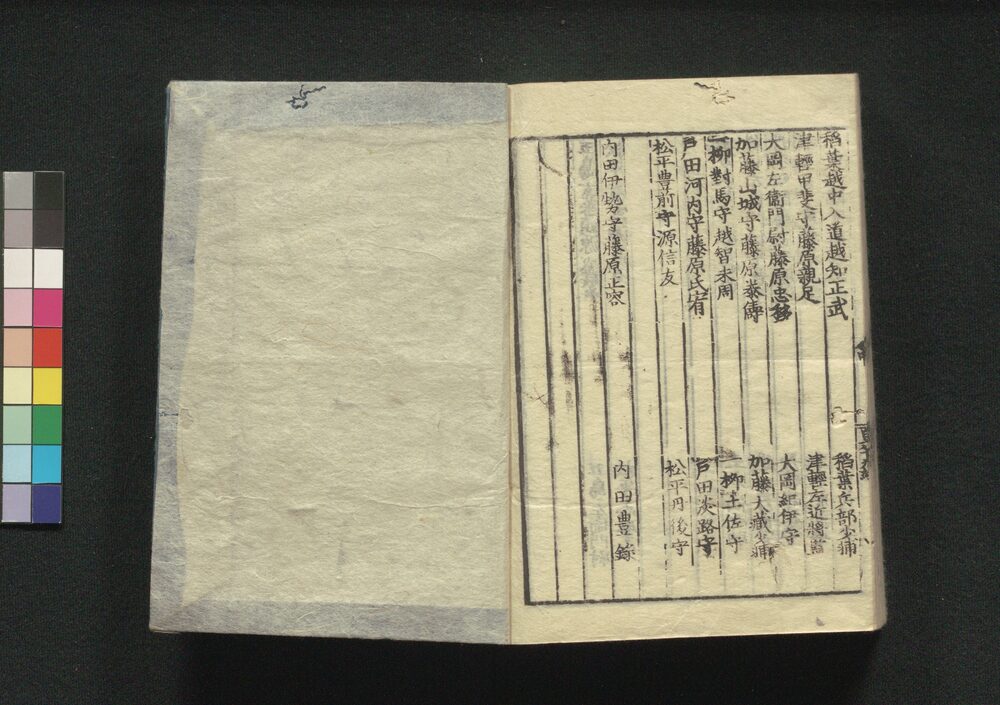 稻葉越中入道越知正武　稻葉兵部少輔
津輕甲斐守藤原親足　津輕左近將監
大岡左衞門尉藤原忠移　大岡紀伊守
加藤山城守藤原泰儔　加藤大藏少輔
一柳對馬守越智末周　一柳土佐守
戸田河内守藤原氏宥　戸田淡路守
松平豊前守源信友　松平丹後守
内田伊勢守藤原正容　内田豊錄